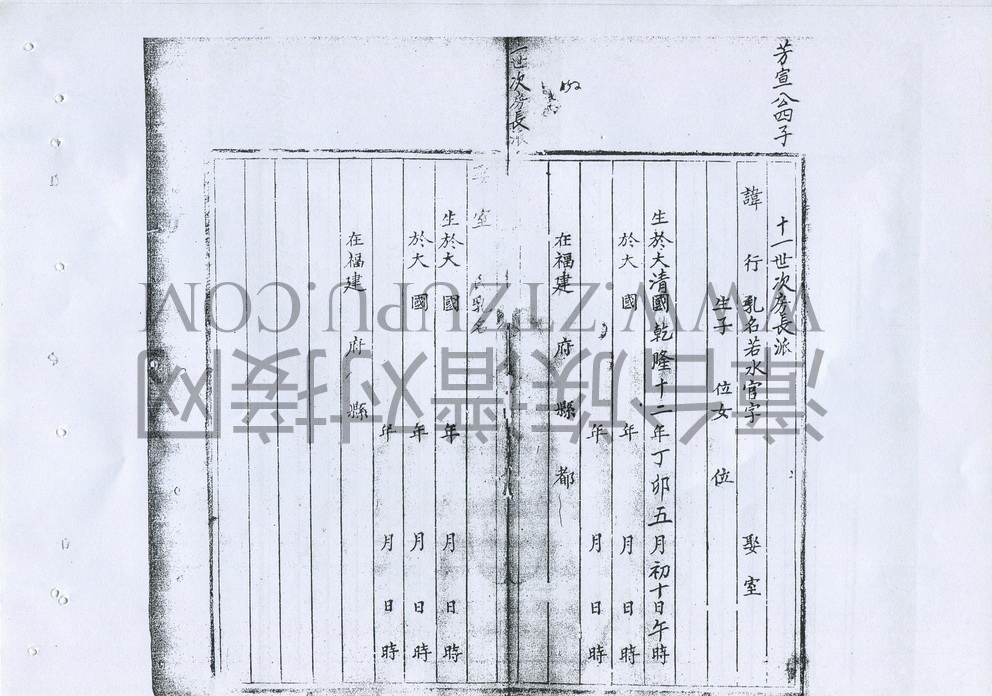 芳宣公四子
十一世次房長派
諱 行 乳名若水官字 娶室
生子 位女 位
生於大清國乾隆十二年丁卯五月初十日午時
於大 國 年 月 日 時
年 月 日 時
在福建 府 縣 都
一世次房長派
室 乳名
生於大 國 年 月 日 時
於大 國 年 月 日 時
年 月 日 時
在福建 府 縣
WWW.ZTZUPU.COM
漳台族谱对接网